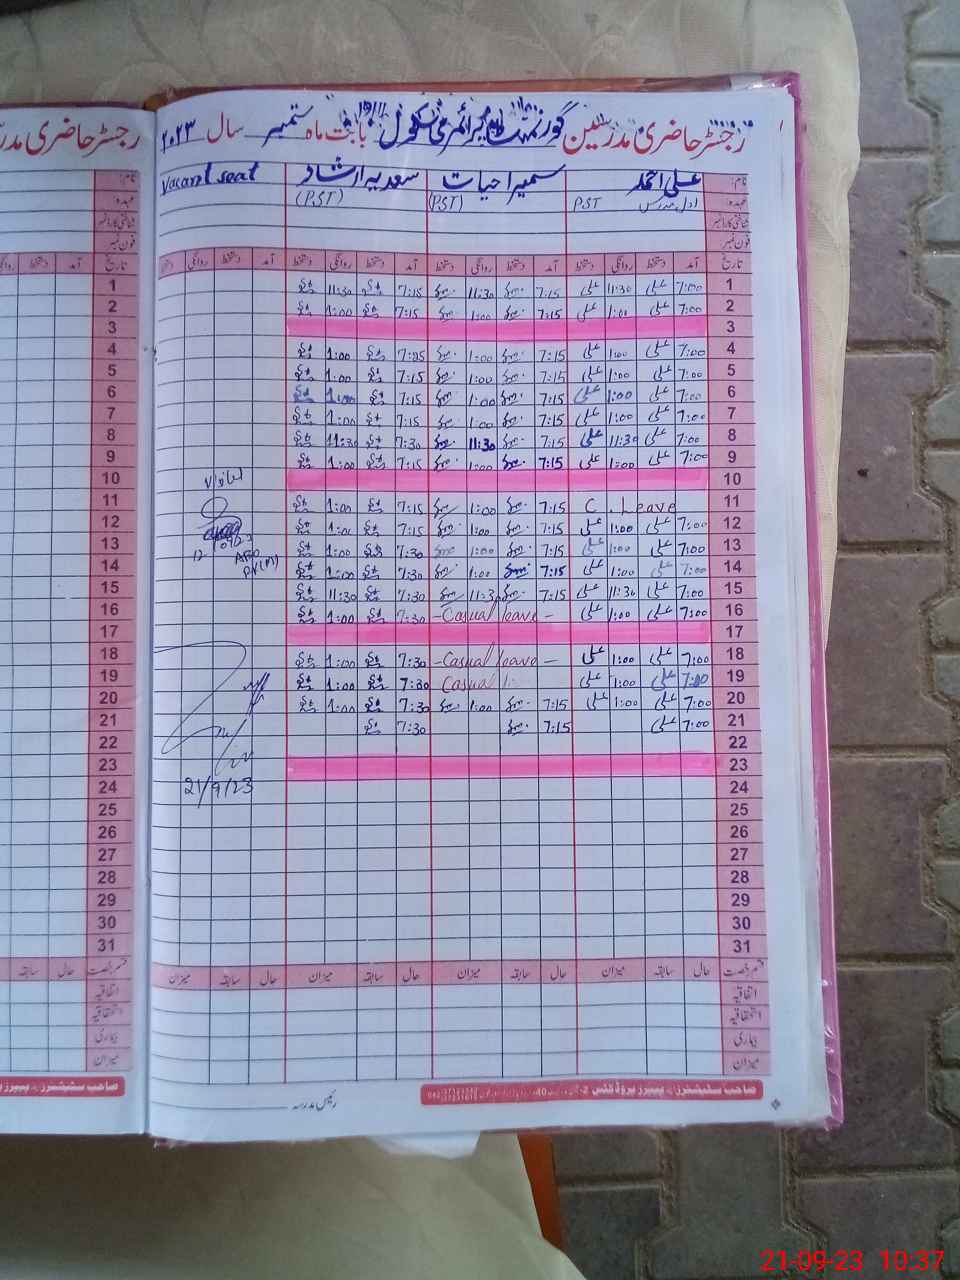 رجسٹر حاضری مدرسین گورنمنٹ پرائمری سکول بابت ماہ ستمبر سال ۲۰۲۳
رجسٹر حاضری
نام: علی احمد سمیرا حیات سعدیہ ارشاد Vacant seat
عہدہ: اول مدرس PST (PST) (PST)
شناختی کارڈ نمبر
فون نمبر
تاریخ آمد دستخط روانگی دستخط آمد دستخط روانگی دستخط آمد دستخط روانگی دستخط آمد دستخط روانگی دستخط
1 7:00 علی 11:30 علی 7:15 11:30 7:15 11:30
2 7:00 علی 1:00 علی 7:15 1:00 7:15 1:00
3
4 7:00 علی 1:00 علی 7:15 1:00 1:00
5 7:00 علی 1:00 علی 7:15 1:00 7:15 1:00
6 7:00 علی 1:00 علی 7:15 1:00 7:15 1:00
7 7:00 علی 1:00 علی 7:15 1:00 7:15 1:00
8 7:00 علی 11:30 علی 7:15 11:30 7:30 11:30
9 7:00 علی 1:00 علی 7:15 1:00 7:15 1:00
10
11 C. Leave 7:15 1:00 7:15 1:00
12 7:00 علی 1:00 علی 7:15 1:00 7:15
13 7:00 علی 1:00 علی 7:15 1:00 7:30 1:00
14 7:00 علی 1:00 علی 7:15 1:00 7:30 1:00
15 7:00 علی 11:30 علی 7:15 11:30 7:30 11:30
16 7:00 علی 1:00 علی -Casual leave- 7:30 1:00
17
18 7:00 علی 1:00 علی -Casual leave- 7:30 1:00
19 7:00 علی 1:00 علی Casual 7:30 1:00
20 7:00 علی 1:00 علی 7:15 1:00 7:30 1:00
21 7:00 علی 7:15 7:30
22
23
24 21/9/23
25
26
27
28
29
30
31
قسم رخصت حال سابقہ میزان حال سابقہ میزان حال سابقہ میزان حال سابقہ میزان
اتفاقیہ
استحقاقیہ
بیماری
میزان
صاحب سٹیشنرز اینڈ پیپرز پروڈکٹس
رئیس مدرسہ
21-09-23 10:37